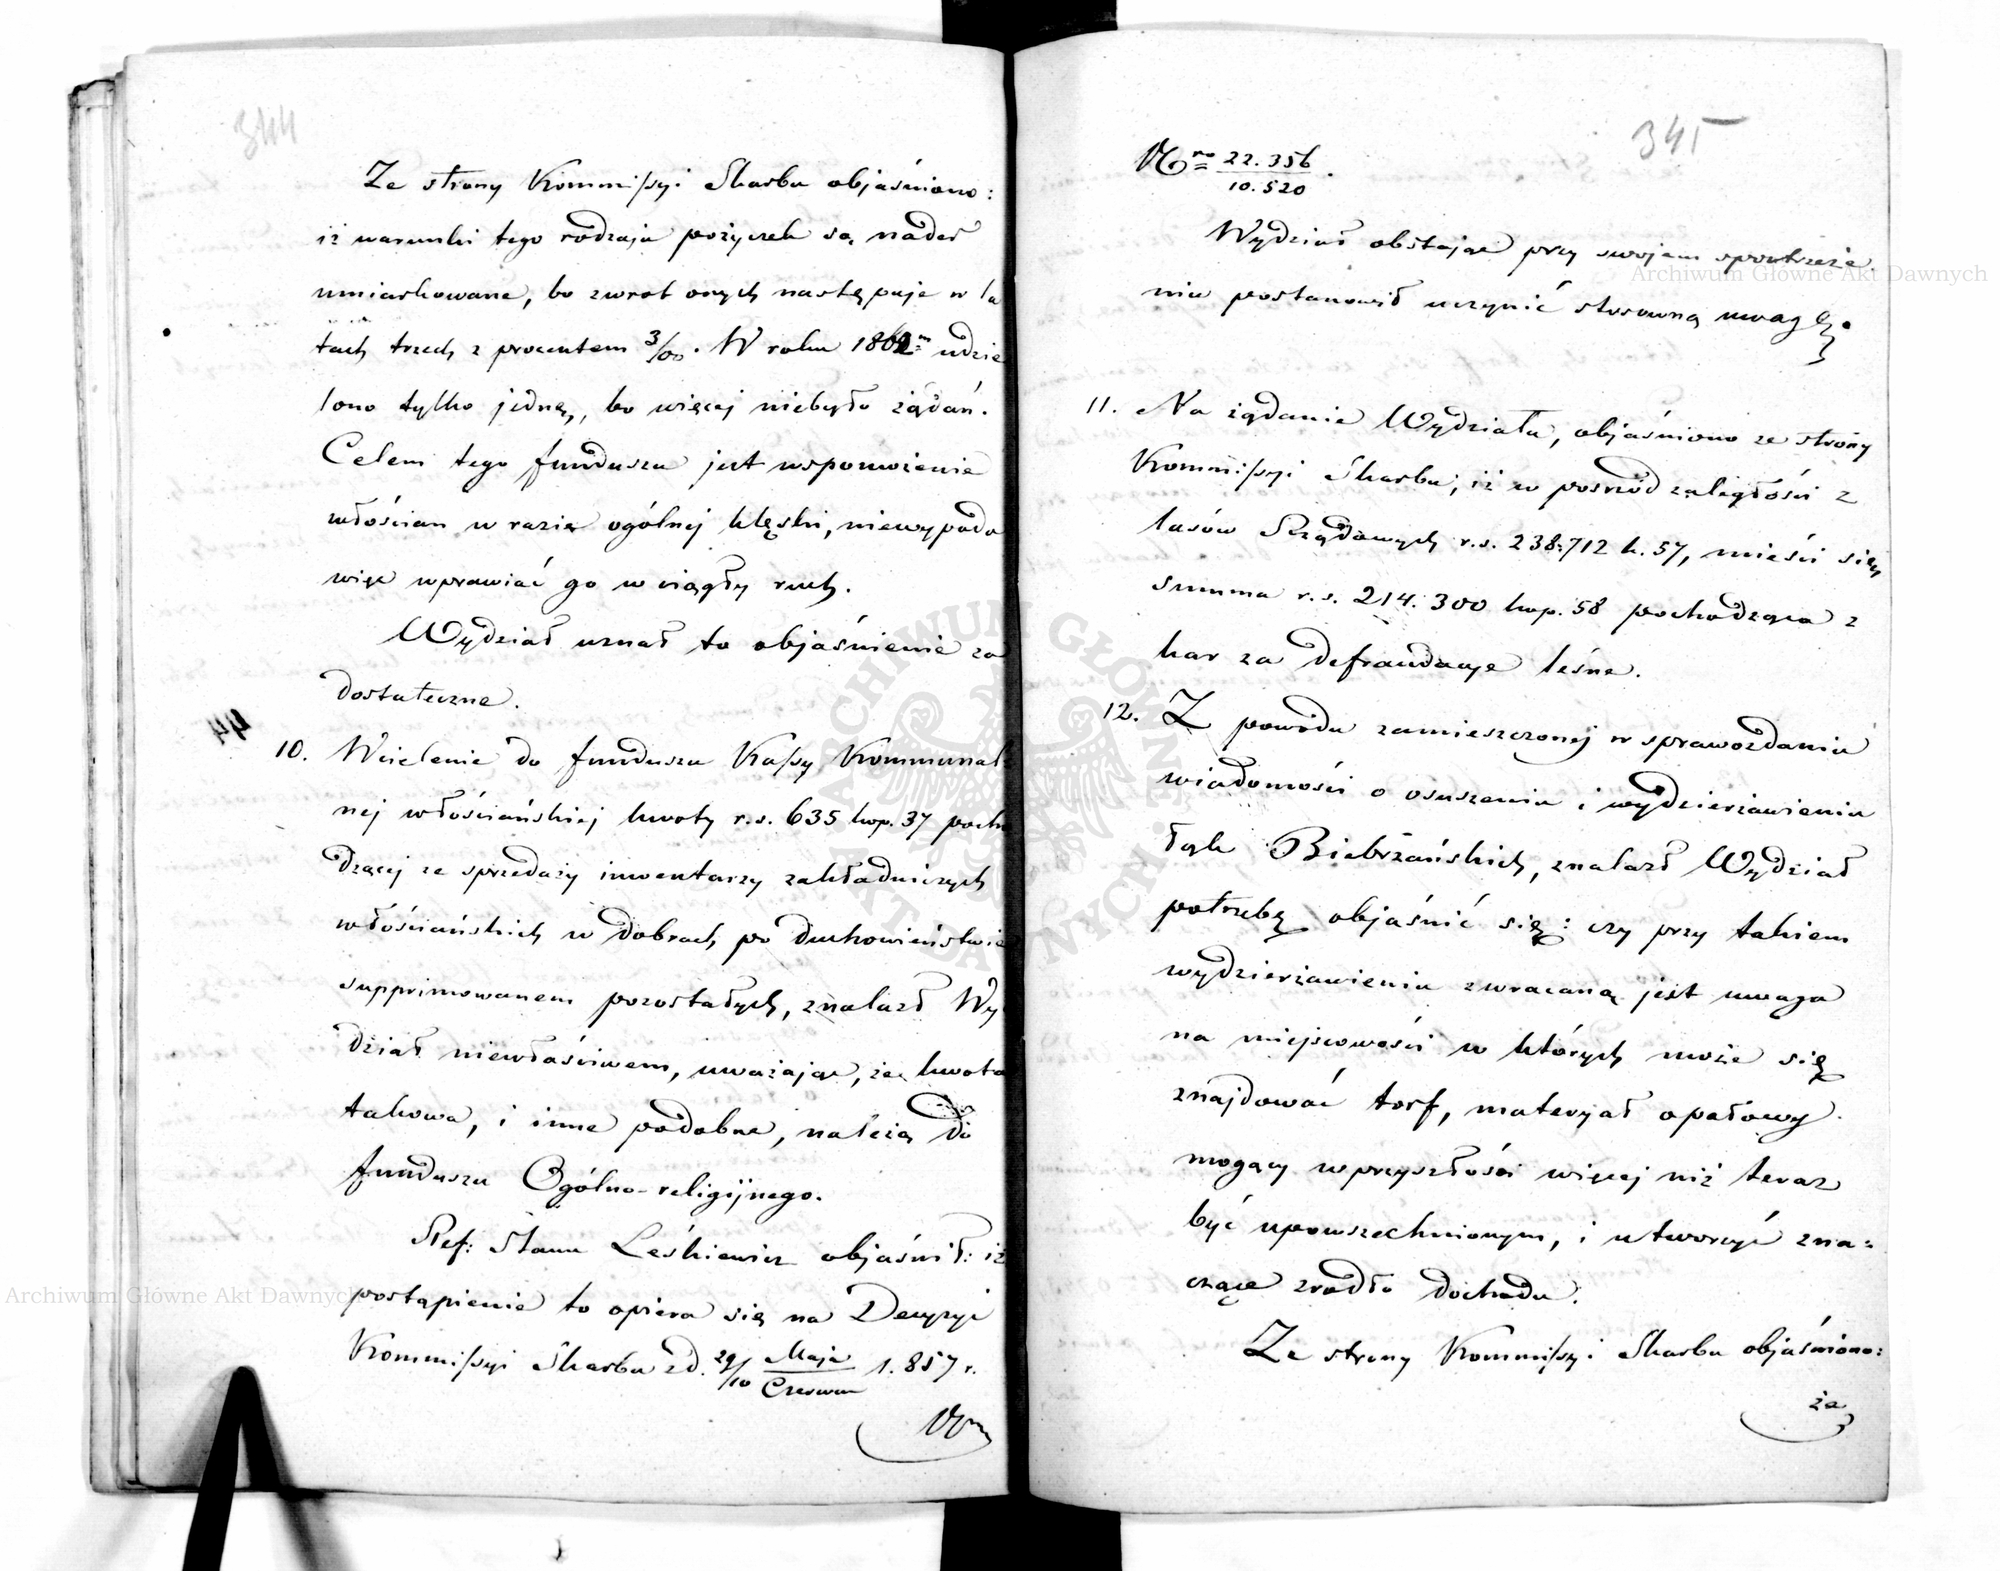 344
Ze strony Kommissyi Skarbu objaśniono:
iż warunki tego rodzaju pożyczek są nader
umiarkowane, bo zwrot onych następuje w la
tach trzech z procentem 3/00. W roku 1862m udzie
lono tylko jednę, bo więcej niebyło żądań.
Celem tego funduszu jest wspomożenie
włościan w razie ogólnej klęski, niewypada
więc wprawiać go w ciągły ruch.
Wydział uznał to objaśnienie za
dostateczne.
44
10. Wcielenie do funduszu Kassy Kommunal
nej włościańskiej kwoty r.s. 635 kop. 37 pocho
dzącej ze sprzedaży inwentarzy zakładniczych
włościańskich w dobrach po duchowieństwie
supprimowanem pozostałych, znalazł Wy
dział niewłaściwem, uważając, że kwota
takowa, i inne podobne, należą do
funduszu Ogólno-religijnego.
Ref: Stanu Leśkiewicz objaśnił: iż
postąpienie to opiera się na Decyzyi
Kommissyi Skarbu z d. 29/10 Maja/Czerwca 1.857 r.
345
Nro 22.356/10.520.
Wydział obstając przy swojem spostrzeże
niu postanowił uczynić stosowną uwagę.
11. Na żądanie Wydziału, objaśniono ze strony
Kommissyi Skarbu, iż w pośród zaległości z
lasów Rządowych r.s. 238.712 k. 57, mieści się
summa r.s. 214.300 kop. 58 pochodząca z
kar za defraudacye leśne.
12. Z powodu zamieszczonej w sprawozdaniu
wiadomości o osuszeniu i wydzierżawieniu
łąk Biebrzańskich, znalazł Wydział
potrzebę objaśnić się: czy przy takiem
wydzierżawieniu zwracaną jest uwaga
na miejscowości w których może się
znajdować torf, materyał opałowy
mogący w przyszłości więcej niż teraz
być upowszechnionym, i utworzyć zna=
czące zrodło dochodu.
Ze strony Kommissyi Skarbu objaśniono:
że
Archiwum Główne Akt Dawnych
Archiwum Główne Akt Dawnych
ARCHIWUM GŁÓWNE AKT DAWNYCH